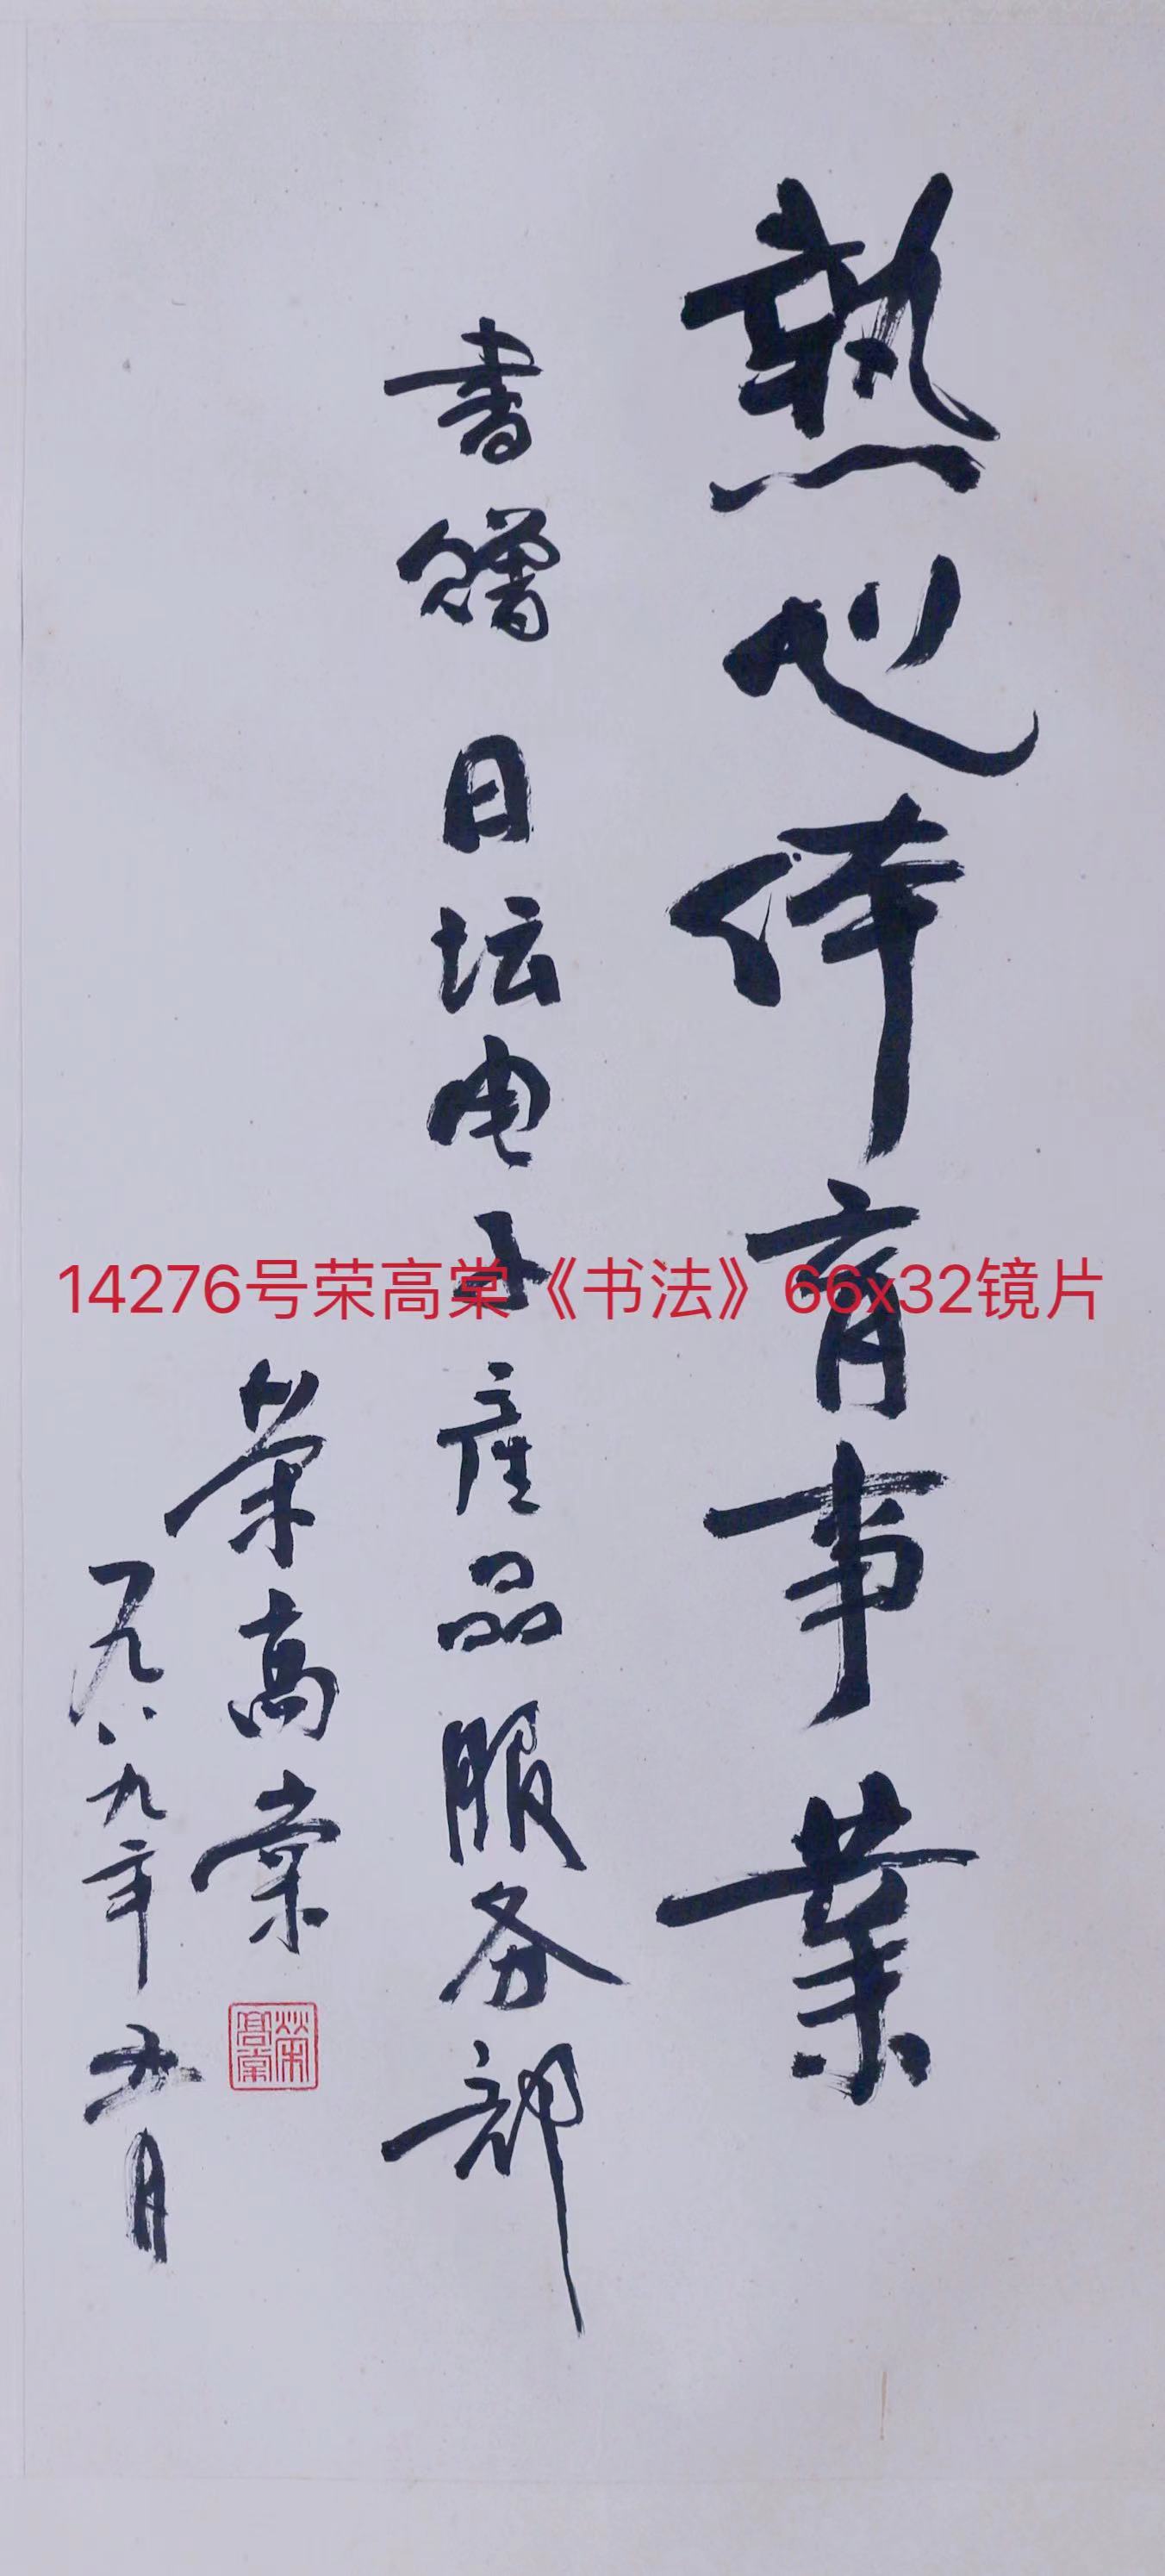 熱心体育事業
書贈日坛电子産品服务部
榮高棠
一九八九年五月
榮高棠
14276号荣高棠《书法》66x32镜片